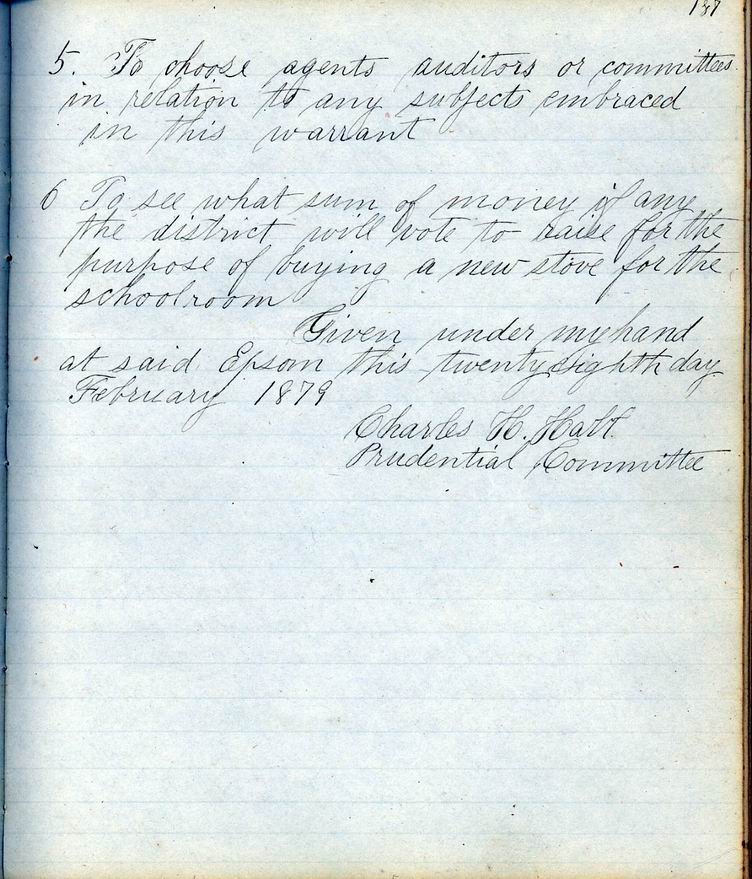 187
5. To choose agents auditors or committees
in relation to any subjects embraced
in this warrant
6 To see what sum of money if any
the district will vote to raise for the
purpose of buying a new stove for the
schoolroom
Given under my hand
at said Epsom this twenty eighth day
February 1879
Charles H. Halt.
Prudential Committee